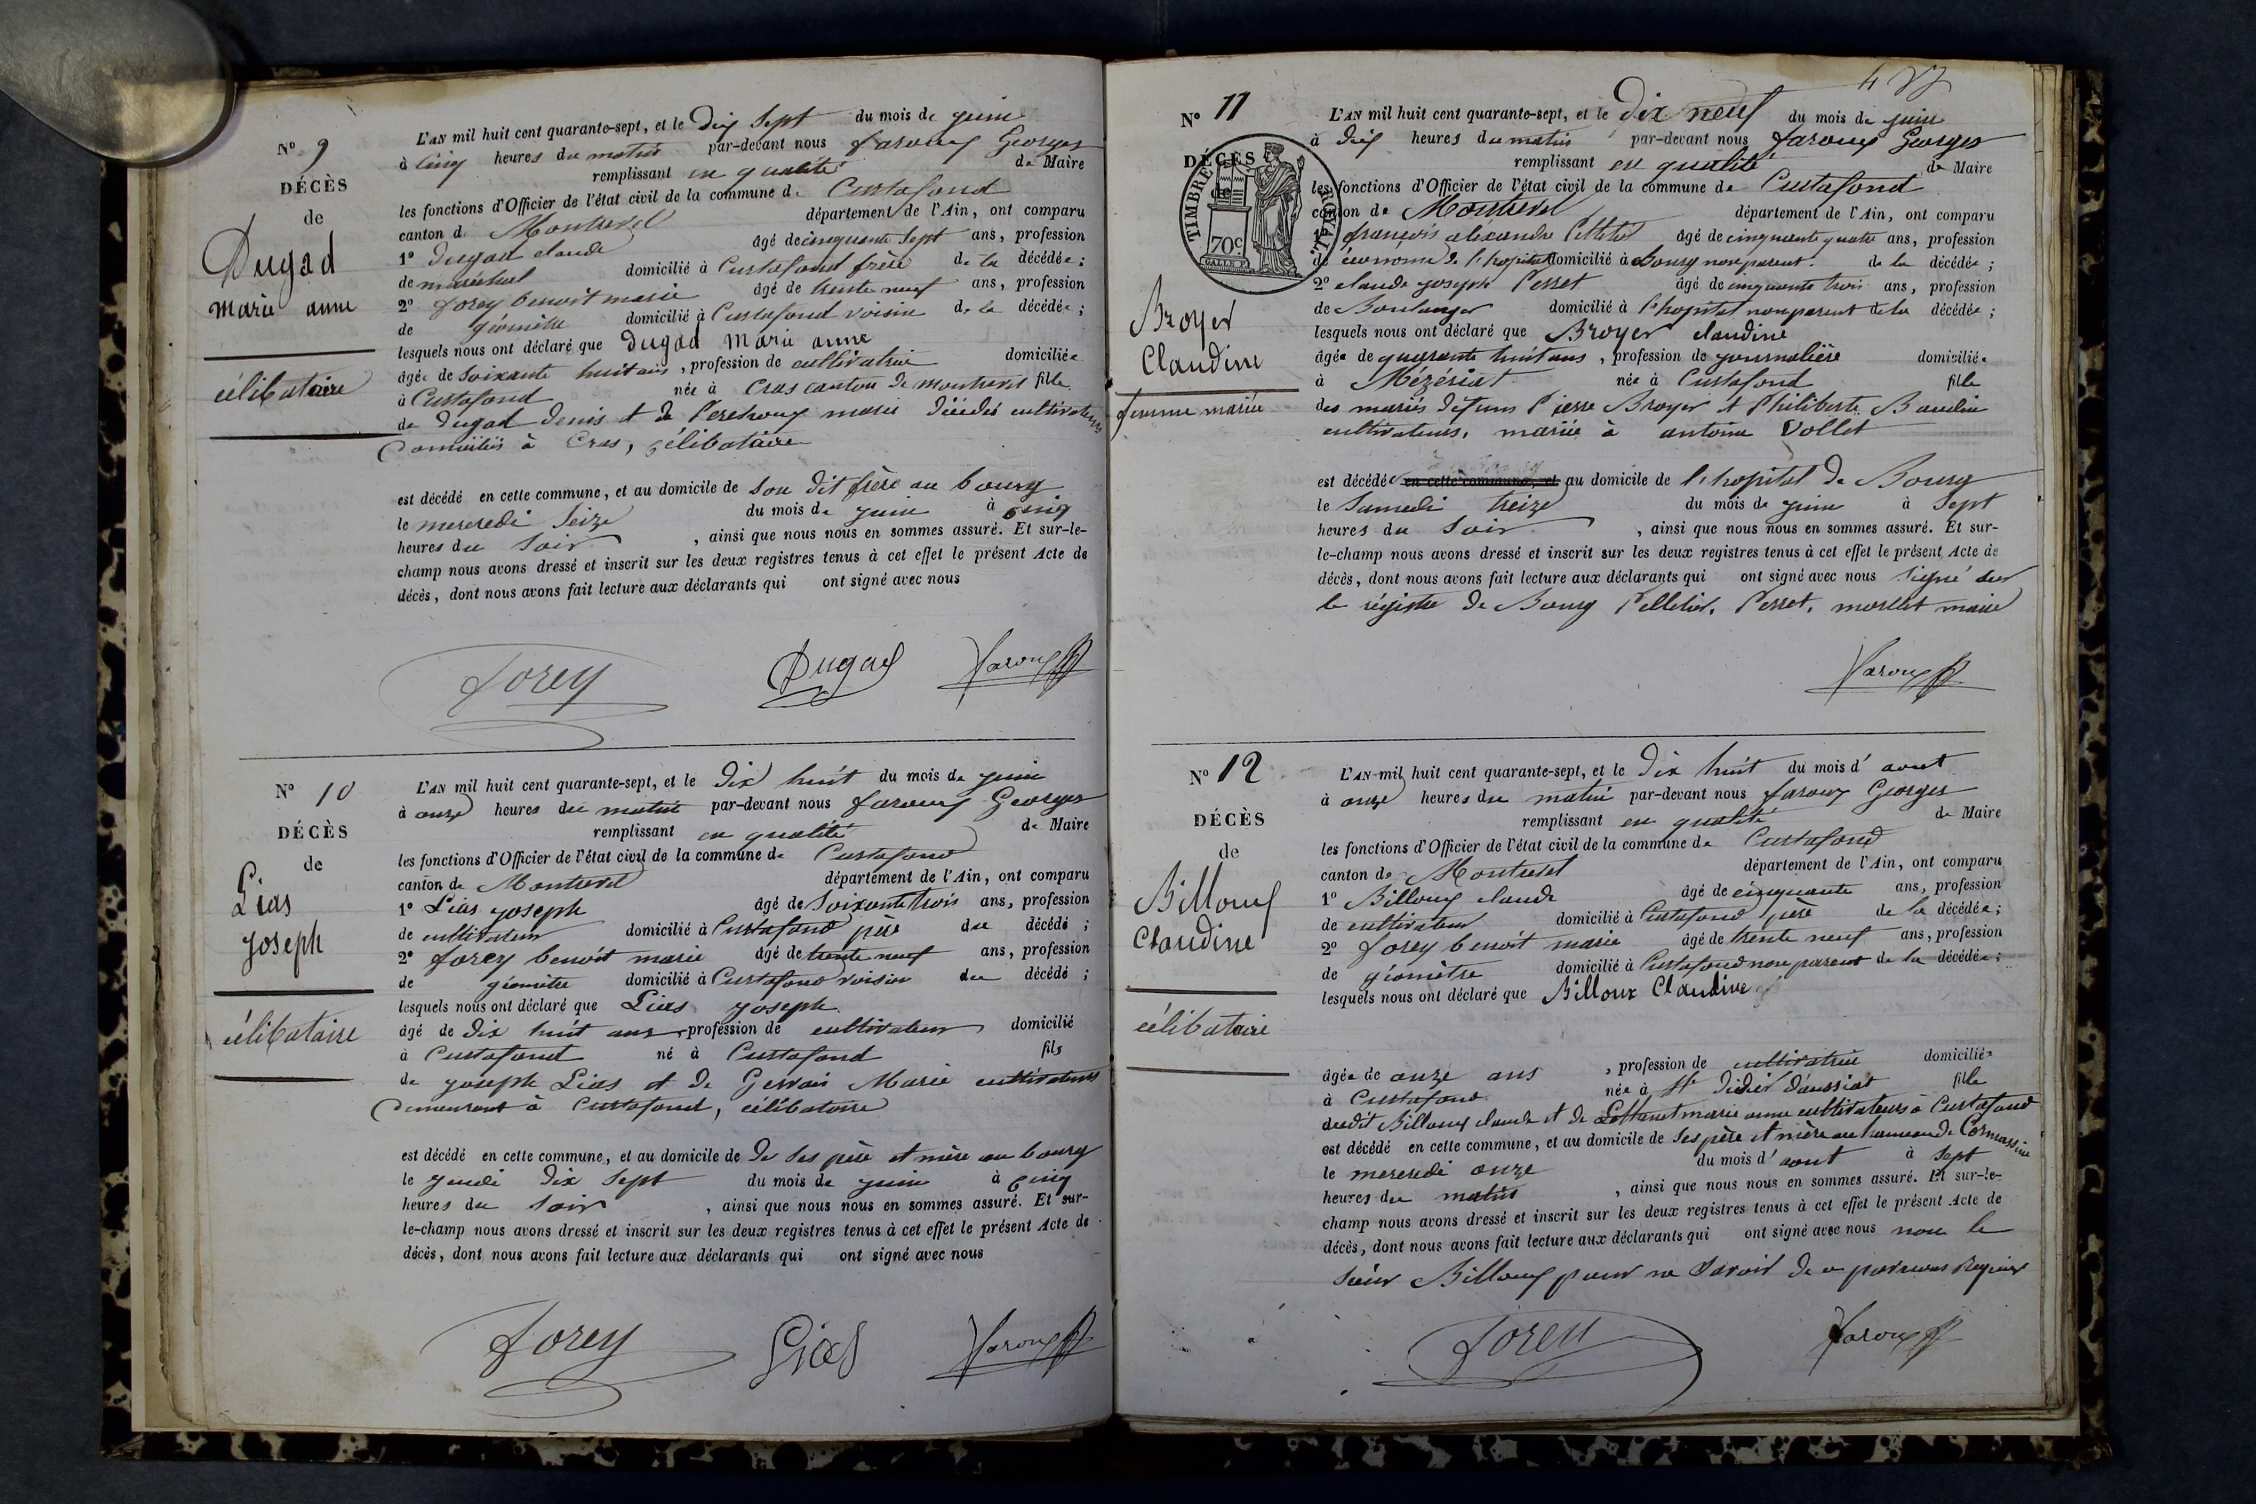 N° 9
DÉCÈS
de
Dugad
marie anne
célibataire
L'AN mil huit cent quarante-sept, et le dix sept du mois de juin
à cinq heures du matin par-devant nous faroux Georges
remplissant en qualité de Maire
les fonctions d'Officier de l'état civil de la commune de Curtafond
canton de Montrevel département de l'Ain, ont comparu
1° Dugad claude âgé de cinquante sept ans, profession
de maréchal domicilié à Curtafond frère de la décédée ;
2° forey benoit marie âgé de trente neuf ans, profession
de géomètre domicilié à Curtafond voisin de la décédée ;
lesquels nous ont déclaré que Dugad marie anne
âgée de soixante huit ans, profession de cultivatrice domiciliée
à Curtafond née à Cras canton de montrevel fille
de Dugad denis et de Perchoux marie décédés cultivateurs
Domiciliés à Cras, célibataire
est décédé en cette commune, et au domicile de son dit frère au bourg
le mercredi seize du mois de juin à cinq
heures du soir, ainsi que nous nous en sommes assuré. Et sur-le-
champ nous avons dressé et inscrit sur les deux registres tenus à cet effet le présent Acte de
décès, dont nous avons fait lecture aux déclarants qui ont signé avec nous
forey Dugad faroux
N° 10
DÉCÈS
de
Lias
joseph
célibataire
L'AN mil huit cent quarante-sept, et le dix huit du mois de juin
à onze heures du matin par-devant nous faroux Georges
remplissant en qualité de Maire
les fonctions d'Officier de l'état civil de la commune de Curtafond
canton de Montrevel département de l'Ain, ont comparu
1° Lias joseph âgé de soixante trois ans, profession
de cultivateur domicilié à Curtafond père du décédé ;
2° forey benoit marie âgé de trente neuf ans, profession
de géomètre domicilié à Curtafond voisin du décédé ;
lesquels nous ont déclaré que Lias joseph
âgé de dix huit ans, profession de cultivateur domicilié
à Curtafond né à Curtafond fils
de joseph Lias et de Gervais Marie cultivateurs
Demeurant à Curtafond, célibataire
est décédé en cette commune, et au domicile de de ses père et mère au bourg
le jeudi dix sept du mois de juin à cinq
heures du soir, ainsi que nous nous en sommes assuré. Et sur-
le-champ nous avons dressé et inscrit sur les deux registres tenus à cet effet le présent Acte de
décès, dont nous avons fait lecture aux déclarants qui ont signé avec nous
forey Lias faroux
N° 11
DÉCÈS
de
TIMBRE ROYAL.
70c
Broyer
Claudine
femme mariée
L'AN mil huit cent quarante-sept, et le dix neuf du mois de juin
à dix heures du matin par-devant nous faroux Georges
remplissant en qualité de Maire
les fonctions d'Officier de l'état civil de la commune de Curtafond
canton de Montrevel département de l'Ain, ont comparu
1° françois alexandre Pelletier âgé de cinquante quatre ans, profession
de économe de l'hopital domicilié à Bourg non parent de la décédée ;
2° claude joseph Perret âgé de cinquante trois ans, profession
de Boulanger domicilié à l'hopital non parent de la décédée ;
lesquels nous ont déclaré que Broyer claudine
âgée de quarante huit ans, profession de journalière domiciliée
à Mézériat née à Curtafond fille
des mariés défunts Pierre Broyer et Philiberte Baudin
cultivateurs, mariée à antoine Vollet
est décédée en cette commune, et au domicile de l'hopital de Bourg
le samedi treize du mois de juin à sept
heures du soir, ainsi que nous nous en sommes assuré. Et sur-
le-champ nous avons dressé et inscrit sur les deux registres tenus à cet effet le présent Acte de
décès, dont nous avons fait lecture aux déclarants qui ont signé avec nous signé sur
le régistre de Bourg Pelletier, Perret, morellet maire
faroux
N° 12
DÉCÈS
de
Billoux
Claudine
célibataire
L'AN mil huit cent quarante-sept, et le dix huit du mois d'aout
à onze heures du matin par-devant nous faroux Georges
remplissant en qualité de Maire
les fonctions d'Officier de l'état civil de la commune de Curtafond
canton de Montrevel département de l'Ain, ont comparu
1° Billoux claude âgé de cinquante ans, profession
de cultivateur domicilié à Curtafond père de la décédée ;
2° forey benoit marie âgé de trente neuf ans, profession
de géomètre domicilié à Curtafond non parent de la décédée ;
lesquels nous ont déclaré que Billoux Claudine
âgée de onze ans, profession de cultivatrice domiciliée
à Curtafond née à St Didier d'aussiat fille
dudit Billoux claude et de marie anne cultivateurs à Curtafond
est décédé en cette commune, et au domicile de ses père et mère au hameau de
le mercredi onze du mois d'aout à sept
heures du matin, ainsi que nous nous en sommes assuré. Et sur-le-
champ nous avons dressé et inscrit sur les deux registres tenus à cet effet le présent Acte de
décès, dont nous avons fait lecture aux déclarants qui ont signé avec nous non le
sieur Billoux pour ne savoir de ce par nous Requis
forey faroux